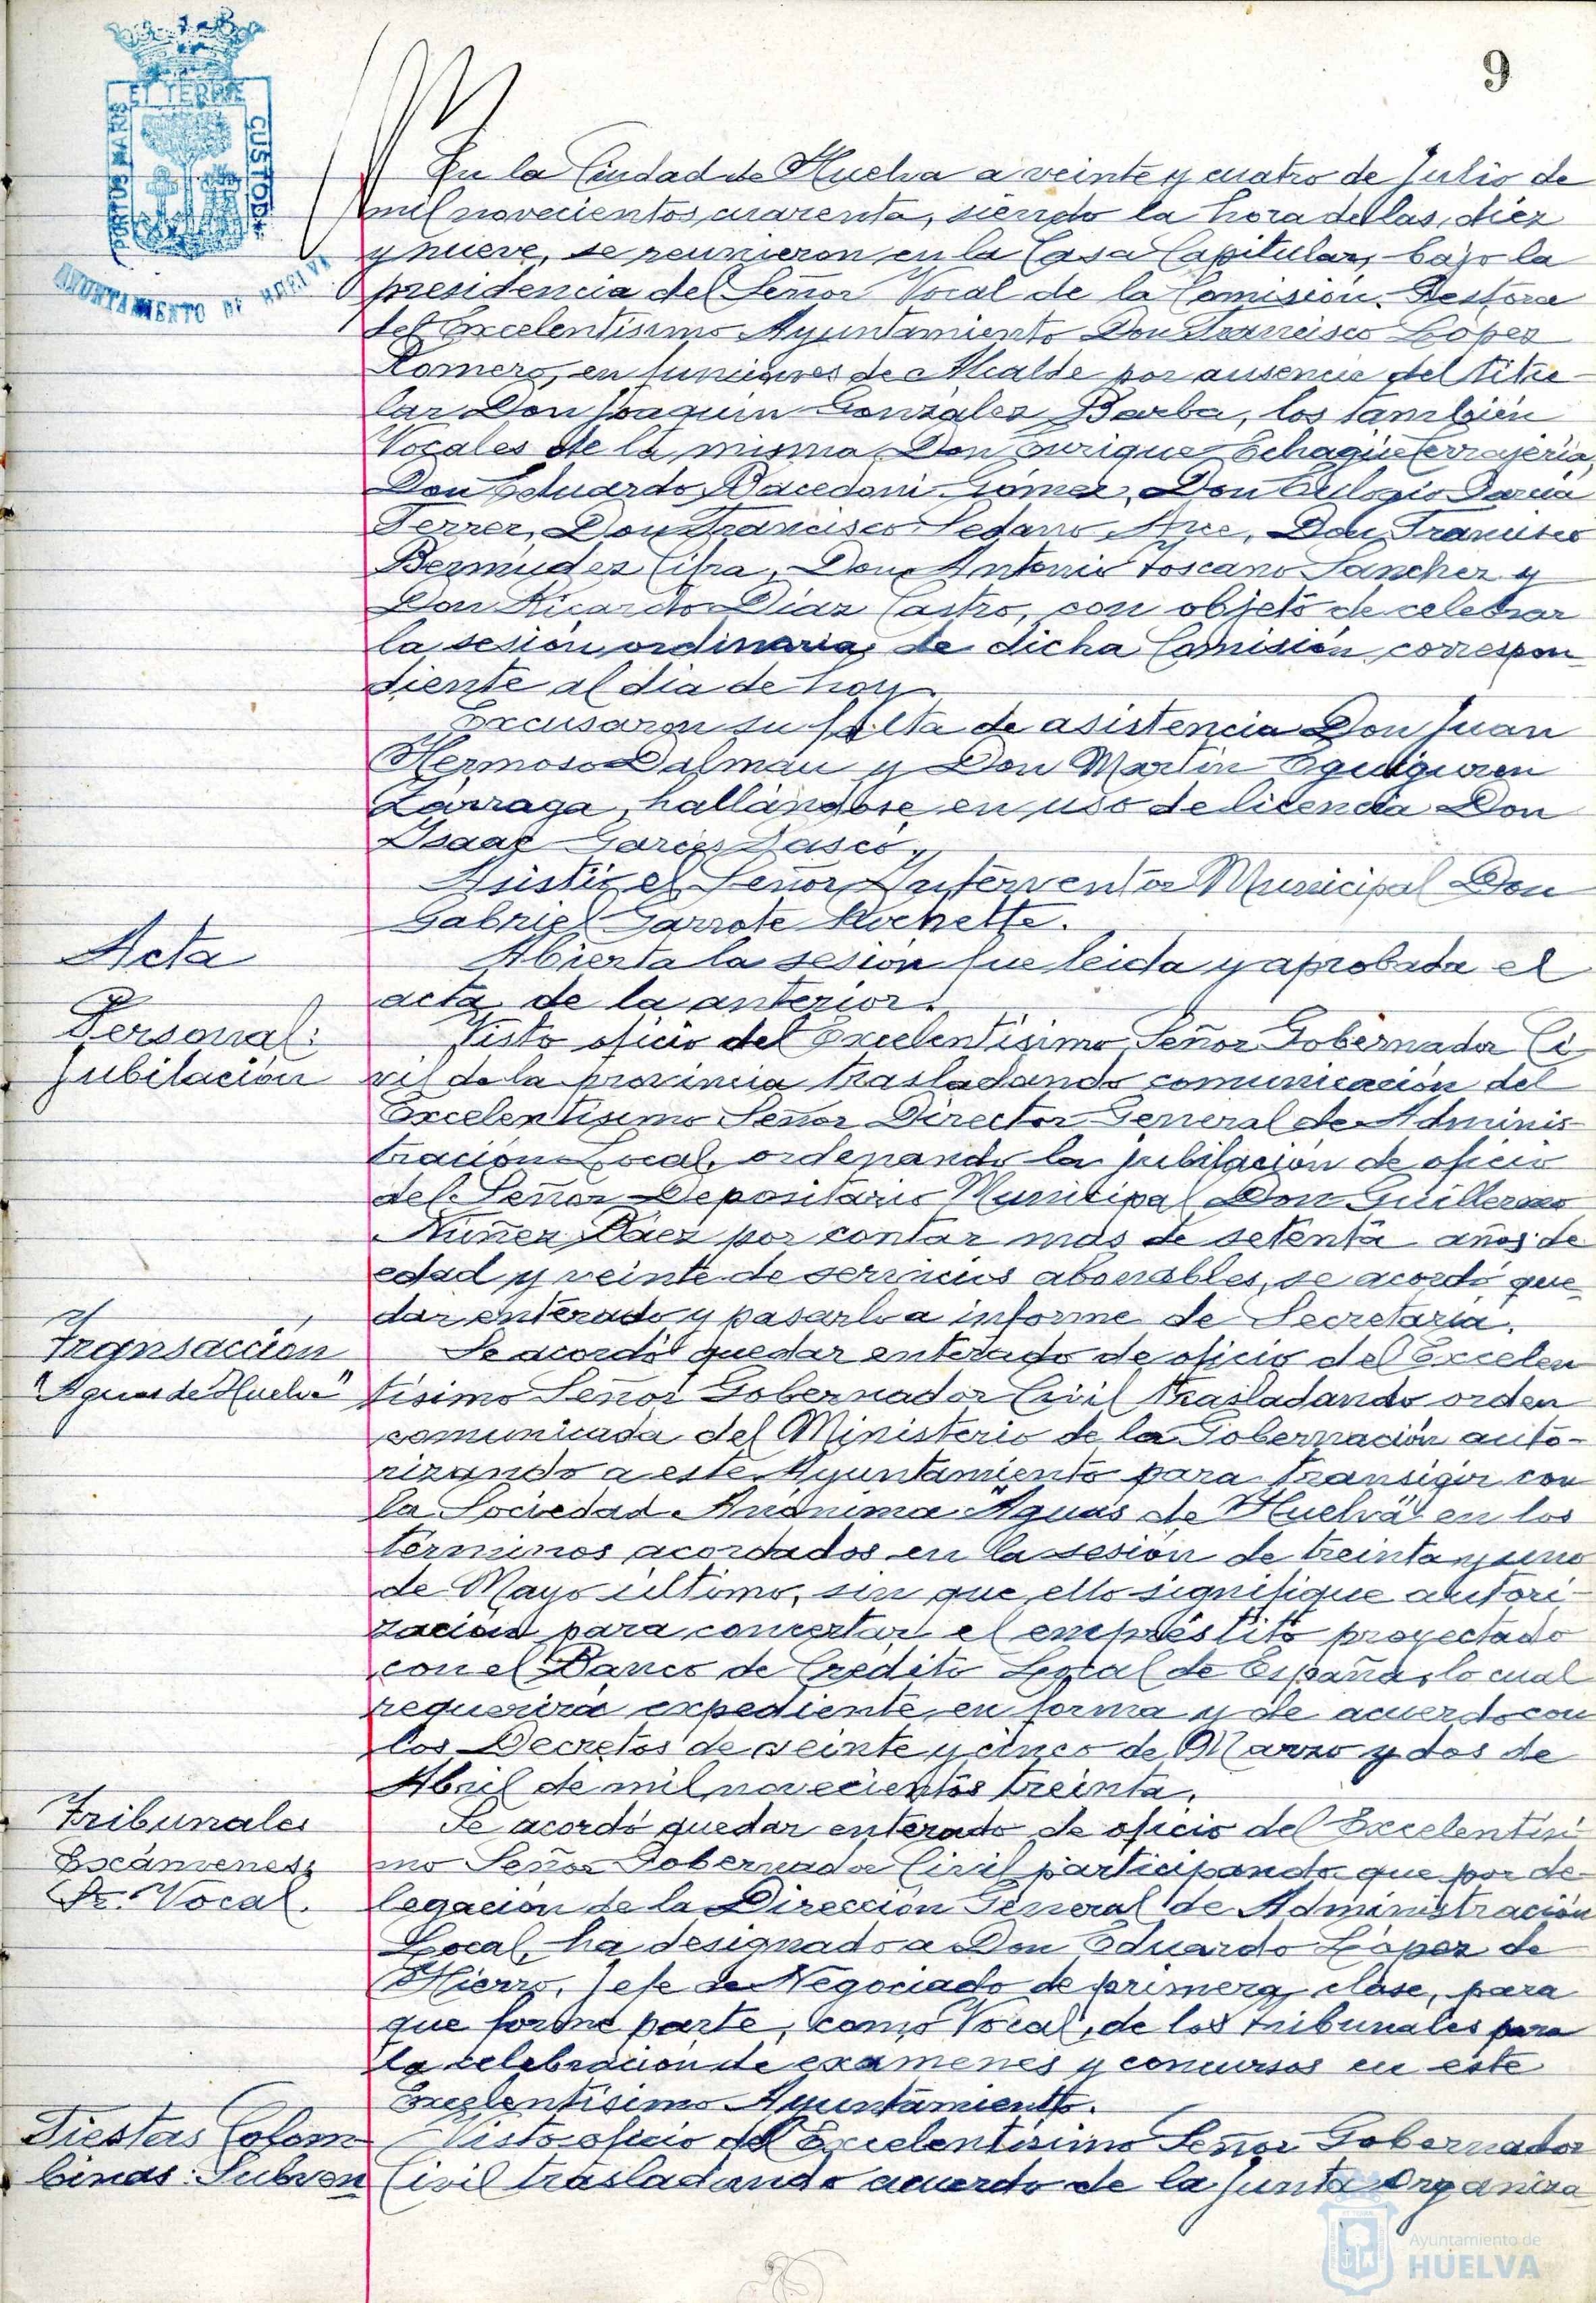 9
ET TERRE
PORTUS MARIS
CUSTODIA
AYUNTAMIENTO DE HUELVA
En la Ciudad de Huelva a veinte y cuatro de Julio de
mil novecientos cuarenta, siendo la hora de las diez
y nueve, se reunieron en la Casa Capitular, bajo la
presidencia del Señor Vocal de la Comisión Gestora
del Excelentísimo Ayuntamiento Don Francisco López
Romero, en funciones de Alcalde por ausencia del titu-
lar Don Joaquín González Barba, los también
Vocales de la misma Don Enrique Echagüe Cerrajería,
Don Eduardo Macedoni Gómez, Don Eulogio García
Ferrer, Don Francisco Sedano Arce, Don Francisco
Bermúdez Cifra, Don Antonio Toscano Sánchez y
Don Ricardo Díaz Castro, con objeto de celebrar
la sesión ordinaria de dicha Comisión correspon
diente al dia de hoy.
Excusaron su falta de asistencia Don Juan
Hermoso Dalmau y Don Martín Eguiguren
Lárraga, hallándose en uso de licencia Don
Isaac Garcés Lasco.
Asistió el Señor Interventor Municipal Don
Gabriel Garrote Rochette.
Acta
Abierta la sesión fue leida y aprobada el
acta de la anterior.
Personal:
Jubilación
Visto oficio del Excelentísimo Señor Gobernador Ci
vil de la provincia trasladando comunicación del
Excelentísimo Señor Director General de Adminis-
tración Local, ordenando la jubilación de oficio
del Señor Depositario Municipal Don Guillermo
Núñez Páez por contar mas de setenta años de
edad y veinte de servicios abonables, se acordó que_
dar enterado y pasarlo a informe de Secretaría.
Transacción
"Aguas de Huelva"
Se acordó quedar enterado de oficio del Excelen
tísimo Señor Gobernador Civil trasladando orden
comunicada del Ministerio de la Gobernación auto-
rizando a este Ayuntamiento para transigir con
la Sociedad Anónima "Aguas de Huelva" en los
términos acordados en la sesión de treinta y uno
de Mayo último, sin que ello signifique autori-
zación para concertar el empréstito proyectado
con el Banco de Crédito Local de España, lo cual
requerirá expediente en forma y de acuerdo con
los Decretos de veinte y cinco de Marzo y dos de
Abril de mil novecientos treinta.
Tribunales
Exámenes:
Sr. Vocal.
Se acordó quedar enterado de oficio del Excelentísi
mo Señor Gobernador Civil participando que por de-
legación de la Dirección General de Administración
Local, ha designado a Don Eduardo López de
Hierro, Jefe de Negociado de primera clase, para
que forme parte, como Vocal, de los tribunales para
la celebración de exámenes y concursos en este
Excelentísimo Ayuntamiento.
Fiestas Colom
binas: Subven
Visto oficio del Excelentísimo Señor Gobernador
Civil trasladando acuerdo de la Junta Organiza
Ayuntamiento de
HUELVA